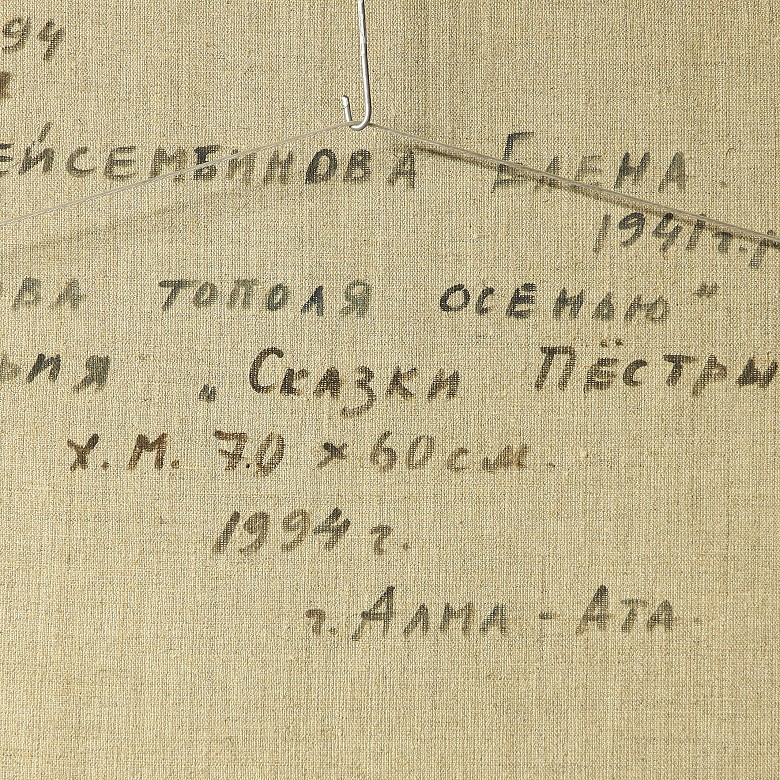 94
ЕЙСЕМБИНОВА ЕЛЕНА
1941 г.р
ОВА ТОПОЛЯ ОСЕНЬЮ"
ЬИЯ „СКАЗКИ ПЁСТРЫ
Х. М. 70 × 60 см.
1994 г.
г. АЛМА-АТА.